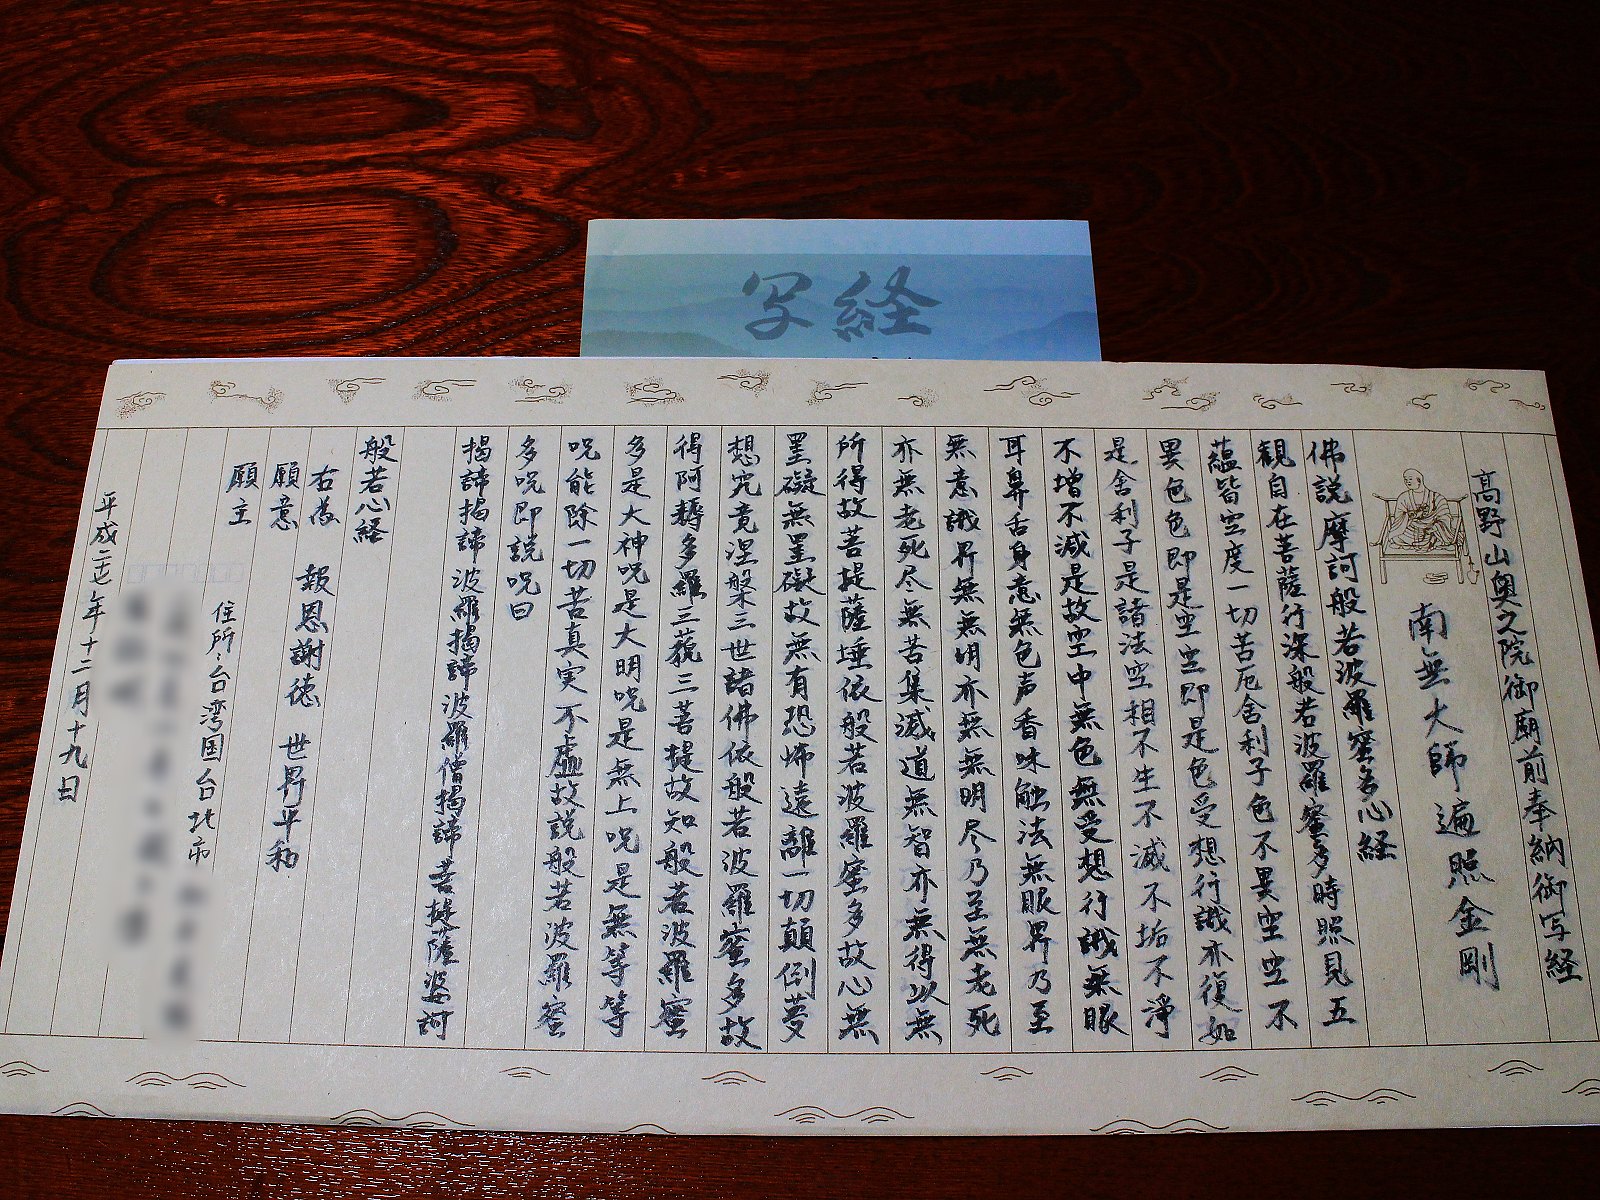 写経
高野山奥之院御廟前奉納御写経
南無大師遍照金剛
佛説摩訶般若波羅蜜多心経
観自在菩薩行深般若波羅蜜多時照見五
蘊皆空度一切苦厄舍利子色不異空空不
異色色即是空空即是色受想行識亦復如
是舍利子是諸法空相不生不滅不垢不淨
不增不減是故空中無色無受想行識無眼
耳鼻舌身意無色声香味触法無眼界乃至
無意識界無無明亦無無明尽乃至無老死
亦無老死尽無苦集滅道無智亦無得以無
所得故菩提薩埵依般若波羅蜜多故心無
罣礙無罣礙故無有恐怖遠離一切顛倒夢
想究竟涅槃三世諸佛依般若波羅蜜多故
得阿耨多羅三藐三菩提故知般若波羅蜜
多是大神呪是大明呪是無上呪是無等等
呪能除一切苦真実不虚故説般若波羅蜜
多呪即説呪曰
揭諦揭諦 波羅揭諦 波羅僧揭諦 菩提薩婆訶
般若心経
右為 報恩謝徳 世界平和
願意
願主
住所：台湾国台北市
平成年十二月十九日